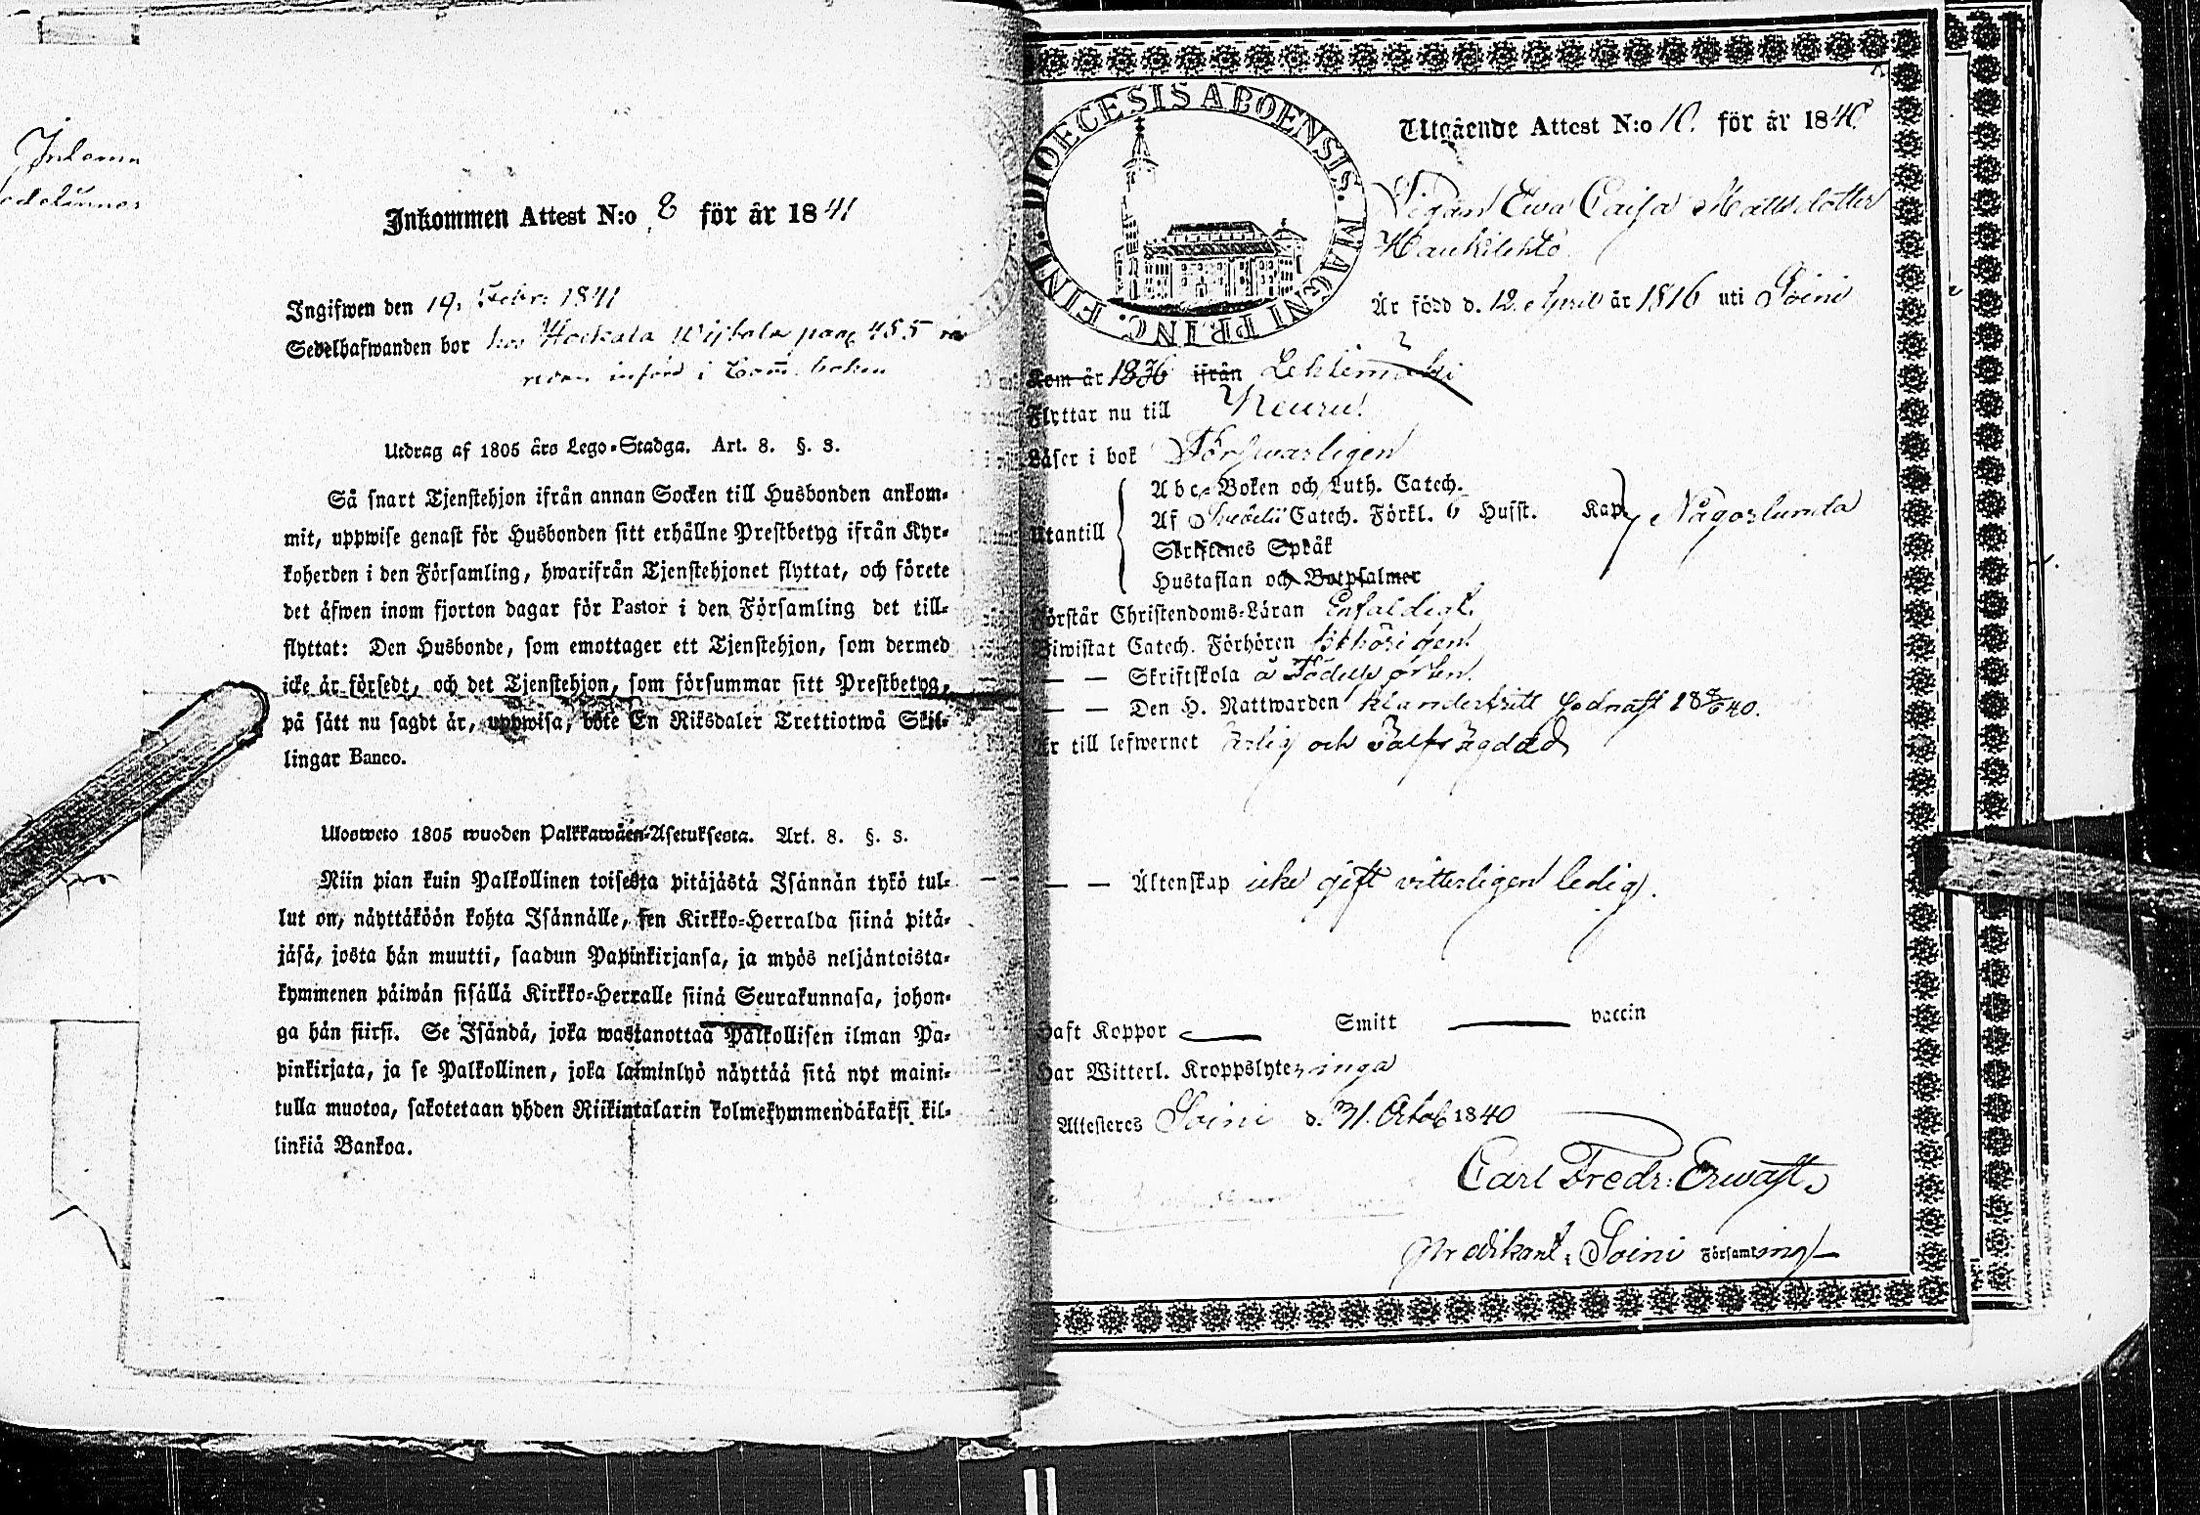 Inkommen Attest N:o 8 för år 1841
Ingifwen den 19. Febr: 1841
Sedelhafwanden bor hos Hockala Wijkala pag 455
redan införd i Com̅. boken
Utdrag af 1805 års Lego-Stadga. Art. 8. §. 3.
Så snart Tjenstehjon ifrån annan Socken till Husbonden ankom-
mit, uppwise genast för Husbonden sitt erhållne Prestbetyg ifrån Kyr-
koherden i den Församling, hwarifrån Tjenstehjonet flyttat, och förete
det äfwen inom fjorton dagar för Pastor i den Församling det till-
flyttat: Den Husbonde, som emottager ett Tjenstehjon, som dermed
icke är försedt, och det Tjenstehjon, som försummar sitt Prestbetyg,
på sätt nu sagdt är, uppwisa, böte En Riksdaler Trettiotwå Skil-
lingar Banco.
Ulosweto 1805 wuoden Palkkawäen-Asetuksesta. Art. 8. §. 3.
Niin pian kuin Palkollinen toisesta pitäjästä Isännän tykö tul-
lut on, näyttäköön kohta Isännälle, sen Kirkko-Herralda siinä pitä-
jäsä, josta hän muutti, saadun Papinkirjansa, ja myös neljäntoista-
kymmenen päiwän sisällä Kirkko-Herralle siinä Seurakunnasa, johon-
ga hän siirsi. Se Isändä, joka wastanottaa Palkollisen ilman Pa-
pinkirjata, ja se Palkollinen, joka laiminlyö näyttää sitä nyt maini-
tulla muotoa, sakotetaan yhden Riikintalarin kolmekymmendäkaksi kil-
linkiä Bankoa.
DIOECESIS ABOENSIS. MAGNI PRINC. FINL.
Utgående Attest N:o 10. för år 1840
Pigan Ewa Caisa Mattsdotter
Haukilehto
Är född d. 12. April år 1816 uti Soini
Kom år 1836 ifrån Lehtimäki
Flyttar nu till Keuru
Läser i bok Förswarligen
Utantill
Abc-Boken och Luth. Catech.
Af Svebelii Catech. Förkl. 6 Hufst. Kap. Någorlunda
Skriftenes Språk
Hustaflan och Botpsalmer
Förstår Christendoms-Läran Enfaldigt.
Biwistat Catech. Förhören behörigen
— — Skriftskola å Födelseorten.
— — Den H. Nattwarden klanderfritt
Är till lefwernet Ärlig och
— — Äktenskap icke gift vitterligen ledig.
Haft Koppor — Smitt — vaccin
Har Witterl. Kroppslyte inga
Attesteres Soini d. 31. Octob 1840
Carl Fredr: Erwast
Predikant i Soini Församling